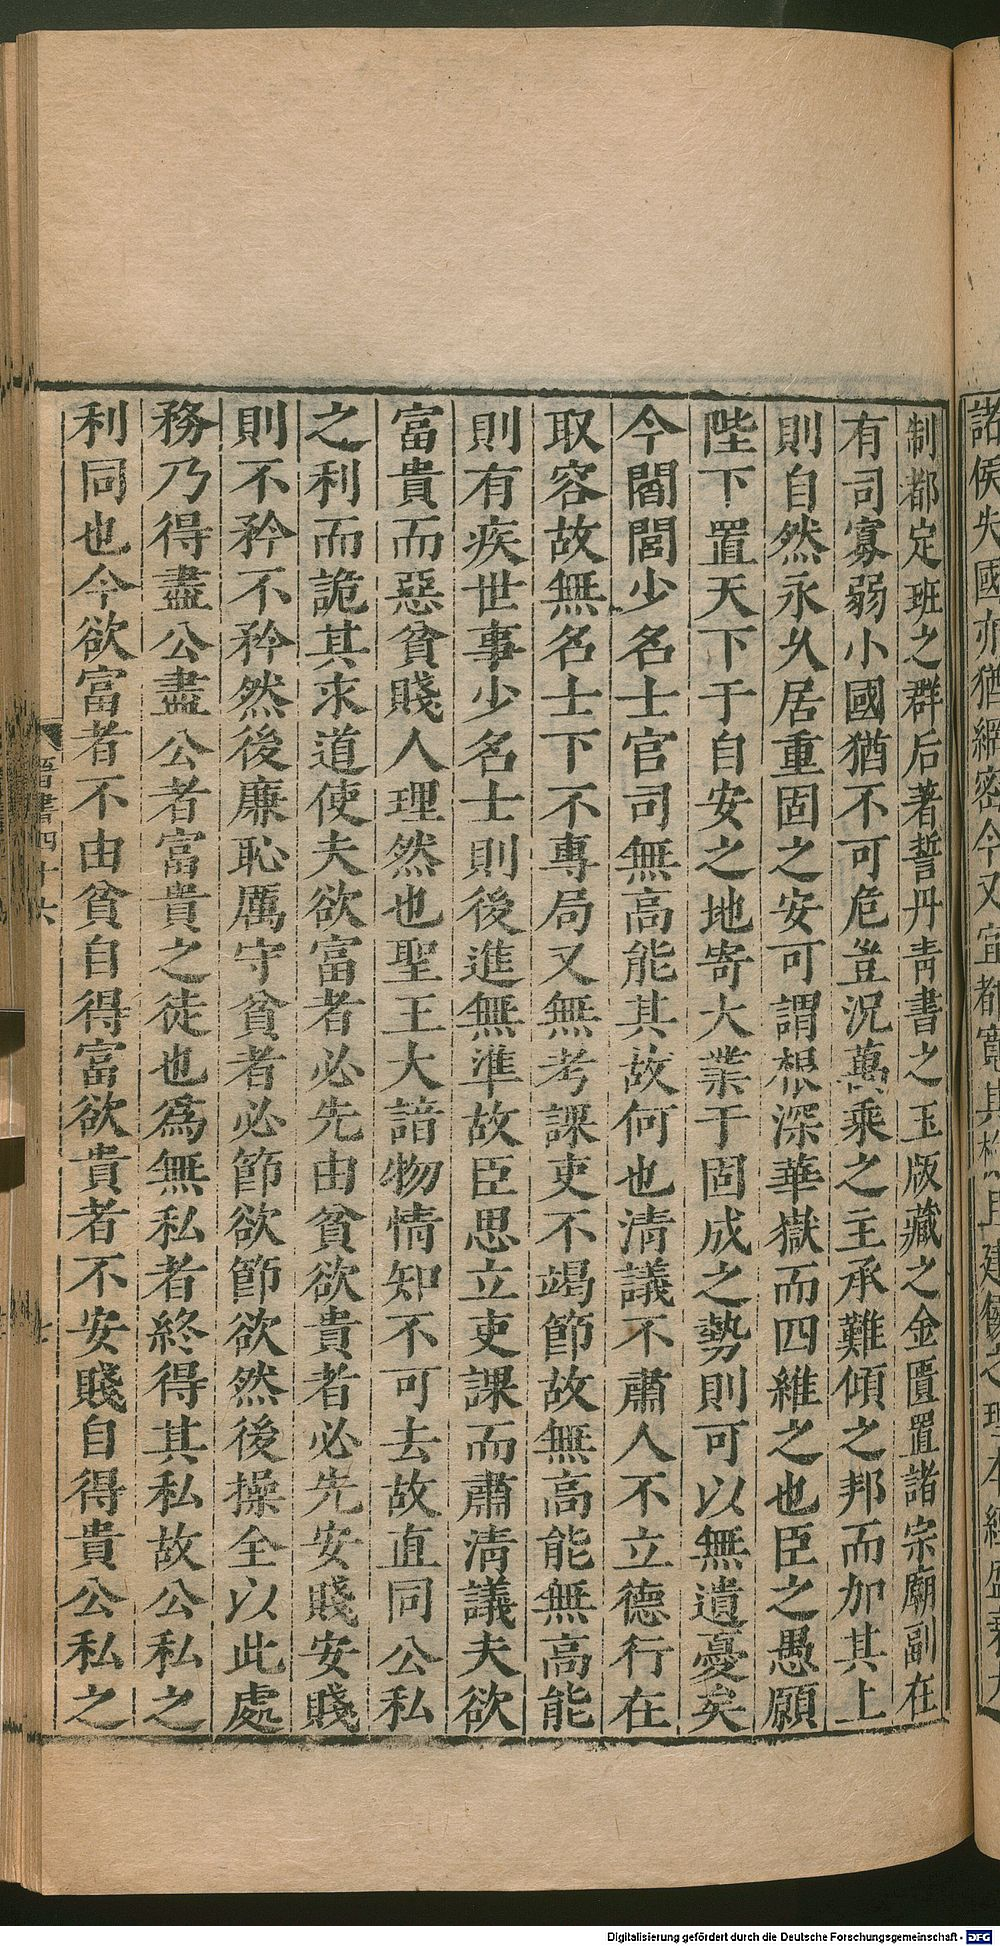 諸侯失國亦猶網密今又宜都寬其檢且建侯之理本經盛衰大
制都定班之群后著誓丹靑書之玉版藏之金匱置諸宗廟副在
有司寡弱小國猶不可危豈況萬乘之主承難傾之邦而加其上
則自然永久居重固之安可謂根深華嶽而四維之也臣之愚願
陛下置天下于自安之地寄大業于固成之勢則可以無遺憂矣
今閻閭少名士官司無高能其故何也淸議不肅人不立德行在
取容故無名士下不專局又無考課吏不竭節故無高能無高能
則有疾世事少名士則後進無準故臣思立吏課而肅淸議夫欲
富貴而惡貧賤人理然也聖王大諳物情知不可去故直同公私
之利而詭其求道使夫欲富者必先由貧欲貴者必先安賤安賤
則不矜不矜然後廉恥厲守貧者必節欲節欲然後操全以此處
務乃得盡公盡公者富貴之徒也爲無私者終得其私故公私之
利同也今欲富者不由貧自得富欲貴者不安賤自得貴公私之
晉書四十六
Digitalisierung gefördert durch die Deutsche Forschungsgemeinschaft - DFG